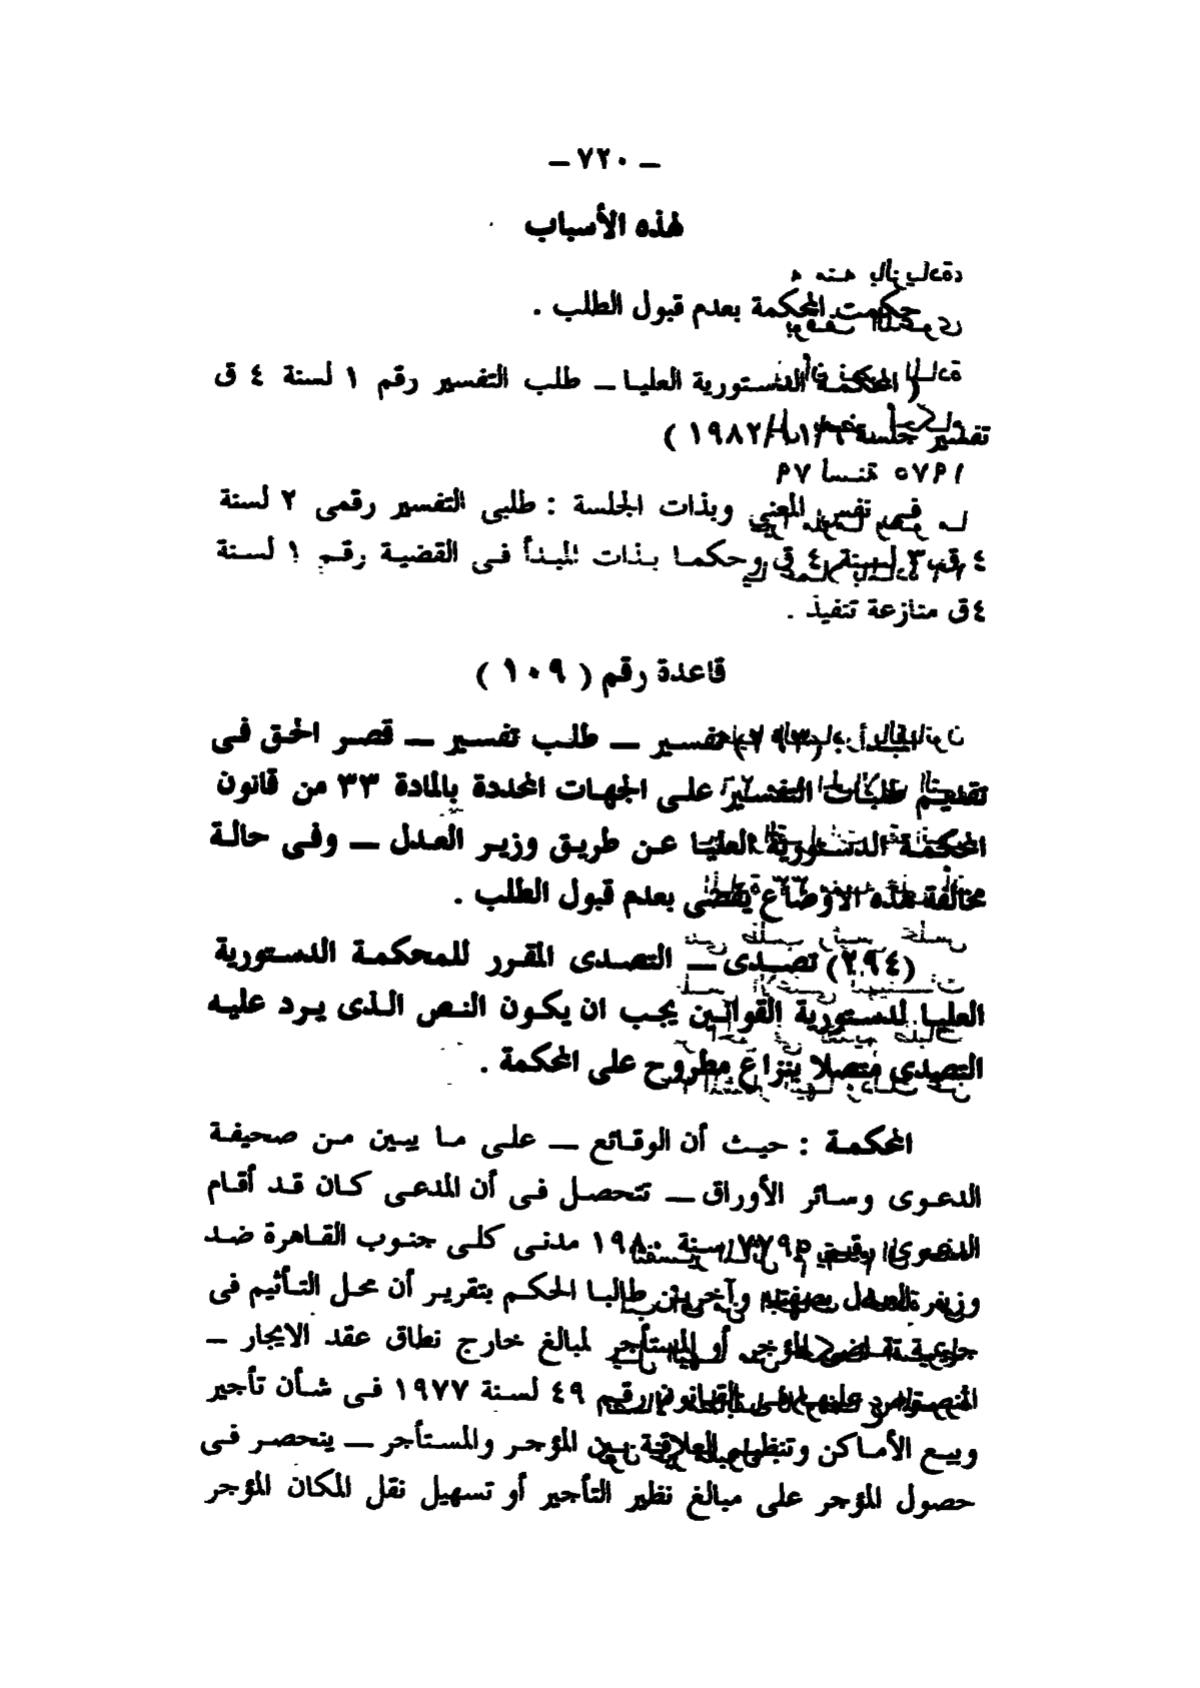 — ٧٢٠ —
لهذه الأسباب
حكمت المحكمة بعدم قبول الطلب .
( المحكمة الدستورية العليا — طلب التفسير رقم ١ لسنة ٤ ق
تفسير جلسة ١٩٨٢/ )
فى نفس المعنى وبذات الجلسة : طلبى التفسير رقمى ٢ لسنة
٤ ق ، ٣ لسنة ٤ ق وحكما بذات المبدأ فى القضية رقم ١ لسنة
٤ق منازعة تنفيذ .
قاعدة رقم ( ١٠٩ )
(٢٩٣) تفسير — طلب تفسير — قصر الحق فى
تقديم طلبات التفسير على الجهات المحددة بالمادة ٣٣ من قانون
المحكمة الدستورية العليا عن طريق وزير العدل — وفى حالة
مخالفة هذه الأوضاع يقضى بعدم قبول الطلب .
(٢٩٤) تصدى — التصدى المقرر للمحكمة الدستورية
العليا لدستورية القوانين يجب ان يكون النص الذى يرد عليه
التصدى متصلا بنزاع مطروح على المحكمة .
المحكمة : حيث أن الوقائع — على ما يبين من صحيفة
الدعوى وسائر الأوراق — تتحصل فى أن المدعى كان قد أقام
الدعوى رقم ٧٧٩٥ سنة ١٩٨٠ مدنى كلى جنوب القاهرة ضد
وزير العدل بصفته وآخرين طالبا الحكم بتقرير أن محل التأثيم فى
جريمة تقاضى المؤجر أو المستأجر لمبالغ خارج نطاق عقد الايجار —
المنصوص عليها فى القانون رقم ٤٩ لسنة ١٩٧٧ فى شأن تأجير
وبيع الأماكن وتنظيم العلاقة بين المؤجر والمستأجر — ينحصر فى
حصول المؤجر على مبالغ نظير التأجير أو تسهيل نقل المكان المؤجر